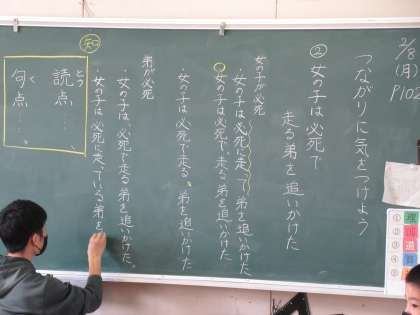 2/8
(月)
P102
つながりに気をつけよう
②女の子は必死で
走る弟を追いかけた
女の子が必死
・女の子は必死に走って弟を追いかけた
女の子は必死で、走る弟を追いかけた
・女の子は必死で走る。弟を追いかけた
弟が必死
・女の子は、必死で走る弟を追いかけた。
・女の子は必死に走っている弟を
知
とう
読点……、
く
句点……。